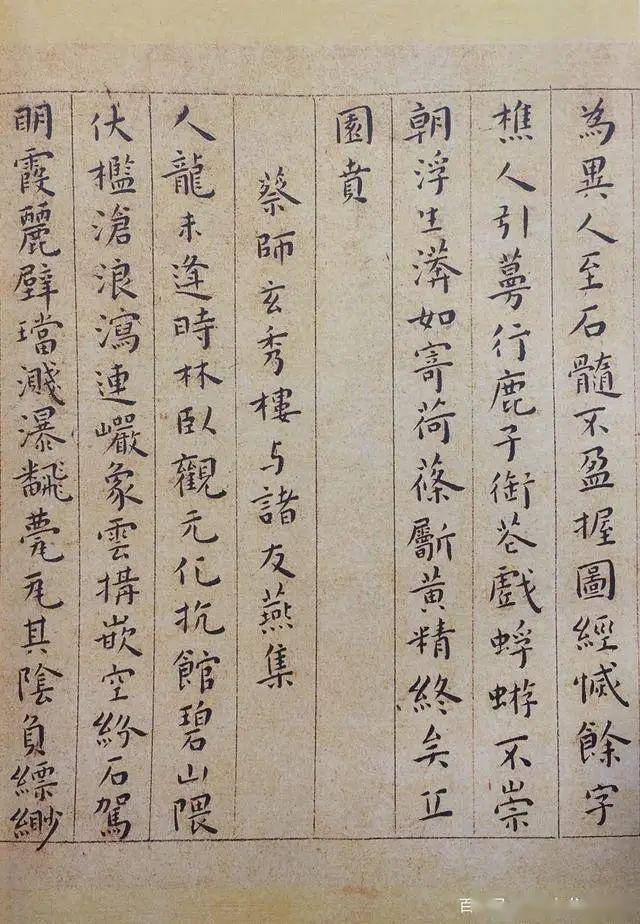 為異人至石髓不盈握圖經惐餘字
樵人引蕚行鹿子銜苍戲蜉蝣不崇
朝浮生漭如寄荷蓧斸黄精終矣丘
園賁
蔡師玄秀樓与諸友燕集
人龍未逢時林臥觀元化抗館碧山隈
伏檻滄浪瀉連巗象雲構嵌空紛石駕
明霞麗璧璫濺瀑飜甍瓦其陰負縹緲